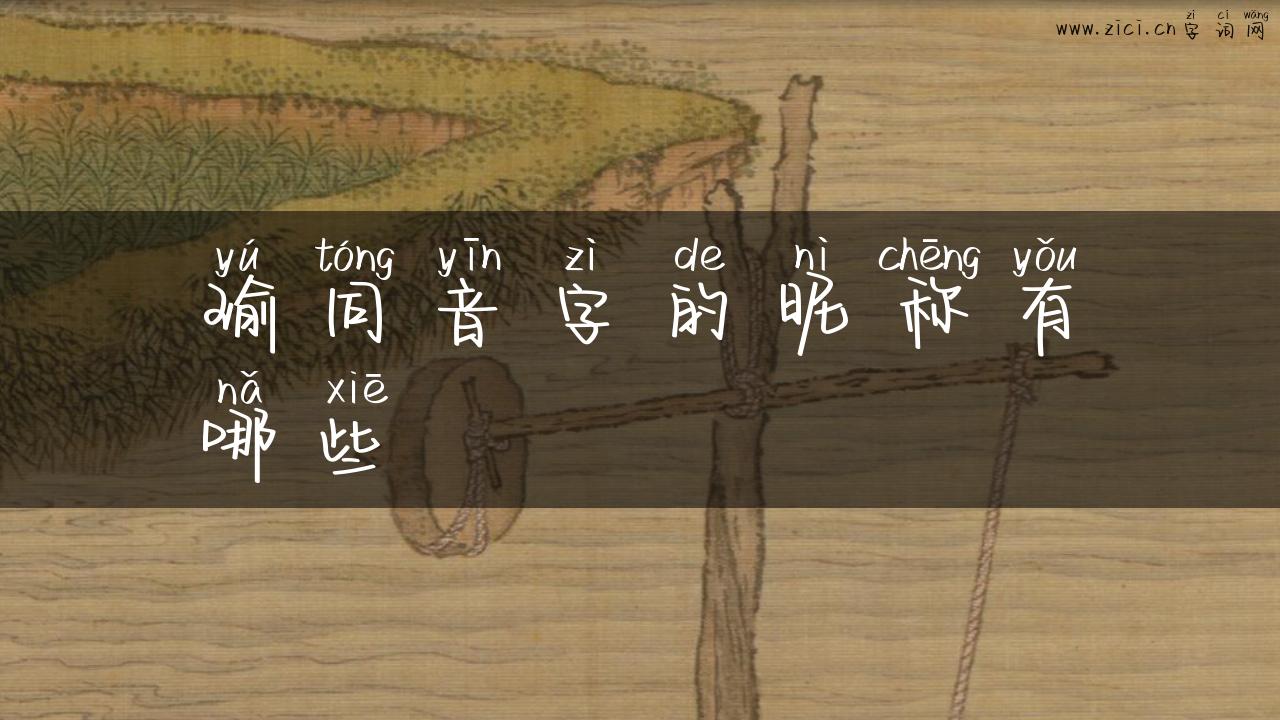 zì cí wǎng
www.zici.cn 字词网
yú tóng yīn zì de nì chēng yǒu
瑜同音字的昵称有
nǎ xiē
哪些